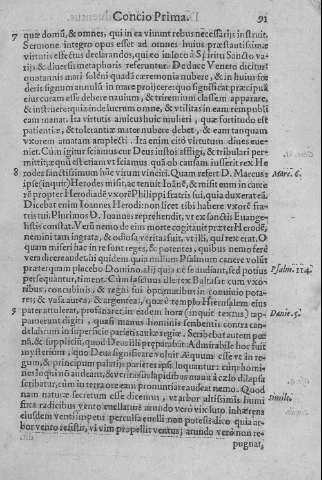 Concio Prima. 91
7 quæ domû, & omnes, qui in ea viuunt rebus necessarijs instruit.
Sermone integro opus esset ad omnes huius præstantissimæ
virtutis effectus declarandos, qui eo in loco à Spiritu Sancto va-
rijs & diuersis metaphoris referuntur. De duce Veneto dicitur
quotannis mari solêni quadã cæremonia nubere, & in huius fœ-
deris signum annulũ in mare projicere: quo significat præcipuã
eius curam esse debere nauium, & triremium classem apparare,
& instruere: ex quo in de lucrum omne, & vtilitas in eam rempubli
cam manat. Ita virtutis amicus huic mulieri, quæ fortitudo est
patientiæ, & tolerantiæ mater nubere debet, & eam tanquam
vxorem amatam amplecti. Ita enim cito virtutum diues eue-
niet. Cum igitur sciamus cur Deus iustos affligi, & tribulari per-
mittit, æquũ est etiam vt sciamus quã ob causam iusserit rex He
8 rodes sanctissimum hũc virum vinciri. Quam refert D. Marcus
ipse (inquit) Herodes misit, ac tenuit Ioãnẽ, & misit eum in carce
rẽ propter Herodiadẽ vxorẽ Philippi fratris sui, quia duxerat eã.
Dicebat enim Ioannes Herodi: non licet tibi habere vxorẽ fra-
tris tui. Plurimos D. Ioannes reprehendit, vt ex sanctis Euange-
listis constat. Verũ nemo de eius morte cogitauit præter Herodẽ,
nemini tam ingrata, & odiosa veritas fuit, vt illi, qui rex erat. O
quam miseri hac in re sunt reges, & potentes, quibus nemo ferè
vera dicere audet. Ibi quidem quia nullum Psalmum canere voluit
præter quam placebo Domino. alij quia cẽ se audiunt, sed potius
persequantur, timent. Cum infaustus ille rex Baltasar cum vxo-
ribus, concubinis, & regni sui optimatibus in conuiuio pota-
ret; & vasa aurea, & argentea, quæ è templo Hierusalem eius
9 pater attulerat, profanaret, in eadem hora (inquit textus) ap-
paruerunt digiti, quasi manus hominis scribentis contra can-
delabrum in superficie parietis aulæ regiæ. Scribebat autem pœ-
nã, & suppliciũ, quod Deus illi præparabat. Admirabile hoc fuit
mysterium, quo Deus significare voluit Æquum esse vt in re-
gum, & principum palatijs parietes ipsi loquantur: cum homi-
nes loqui nõ audeant, & veritas in lapidibus manu à cælo dilapsa
scribatur, cùm in terra ore eam pronuntiare audeat nemo. Quod
nam naturæ secretum esse dicemus, vt arbor altissimis humi
fixa radicibus vento euellatur? arundo verò vix luto inhærens
eiusdem venti impetu percussa euelli non potest? dico quia ar-
bor vento resistit, vi vim propellit ventus; arundo verò non re-
pugnat,
Marc. 6.
Psalm. 114.
Danie. 5.
Simile.